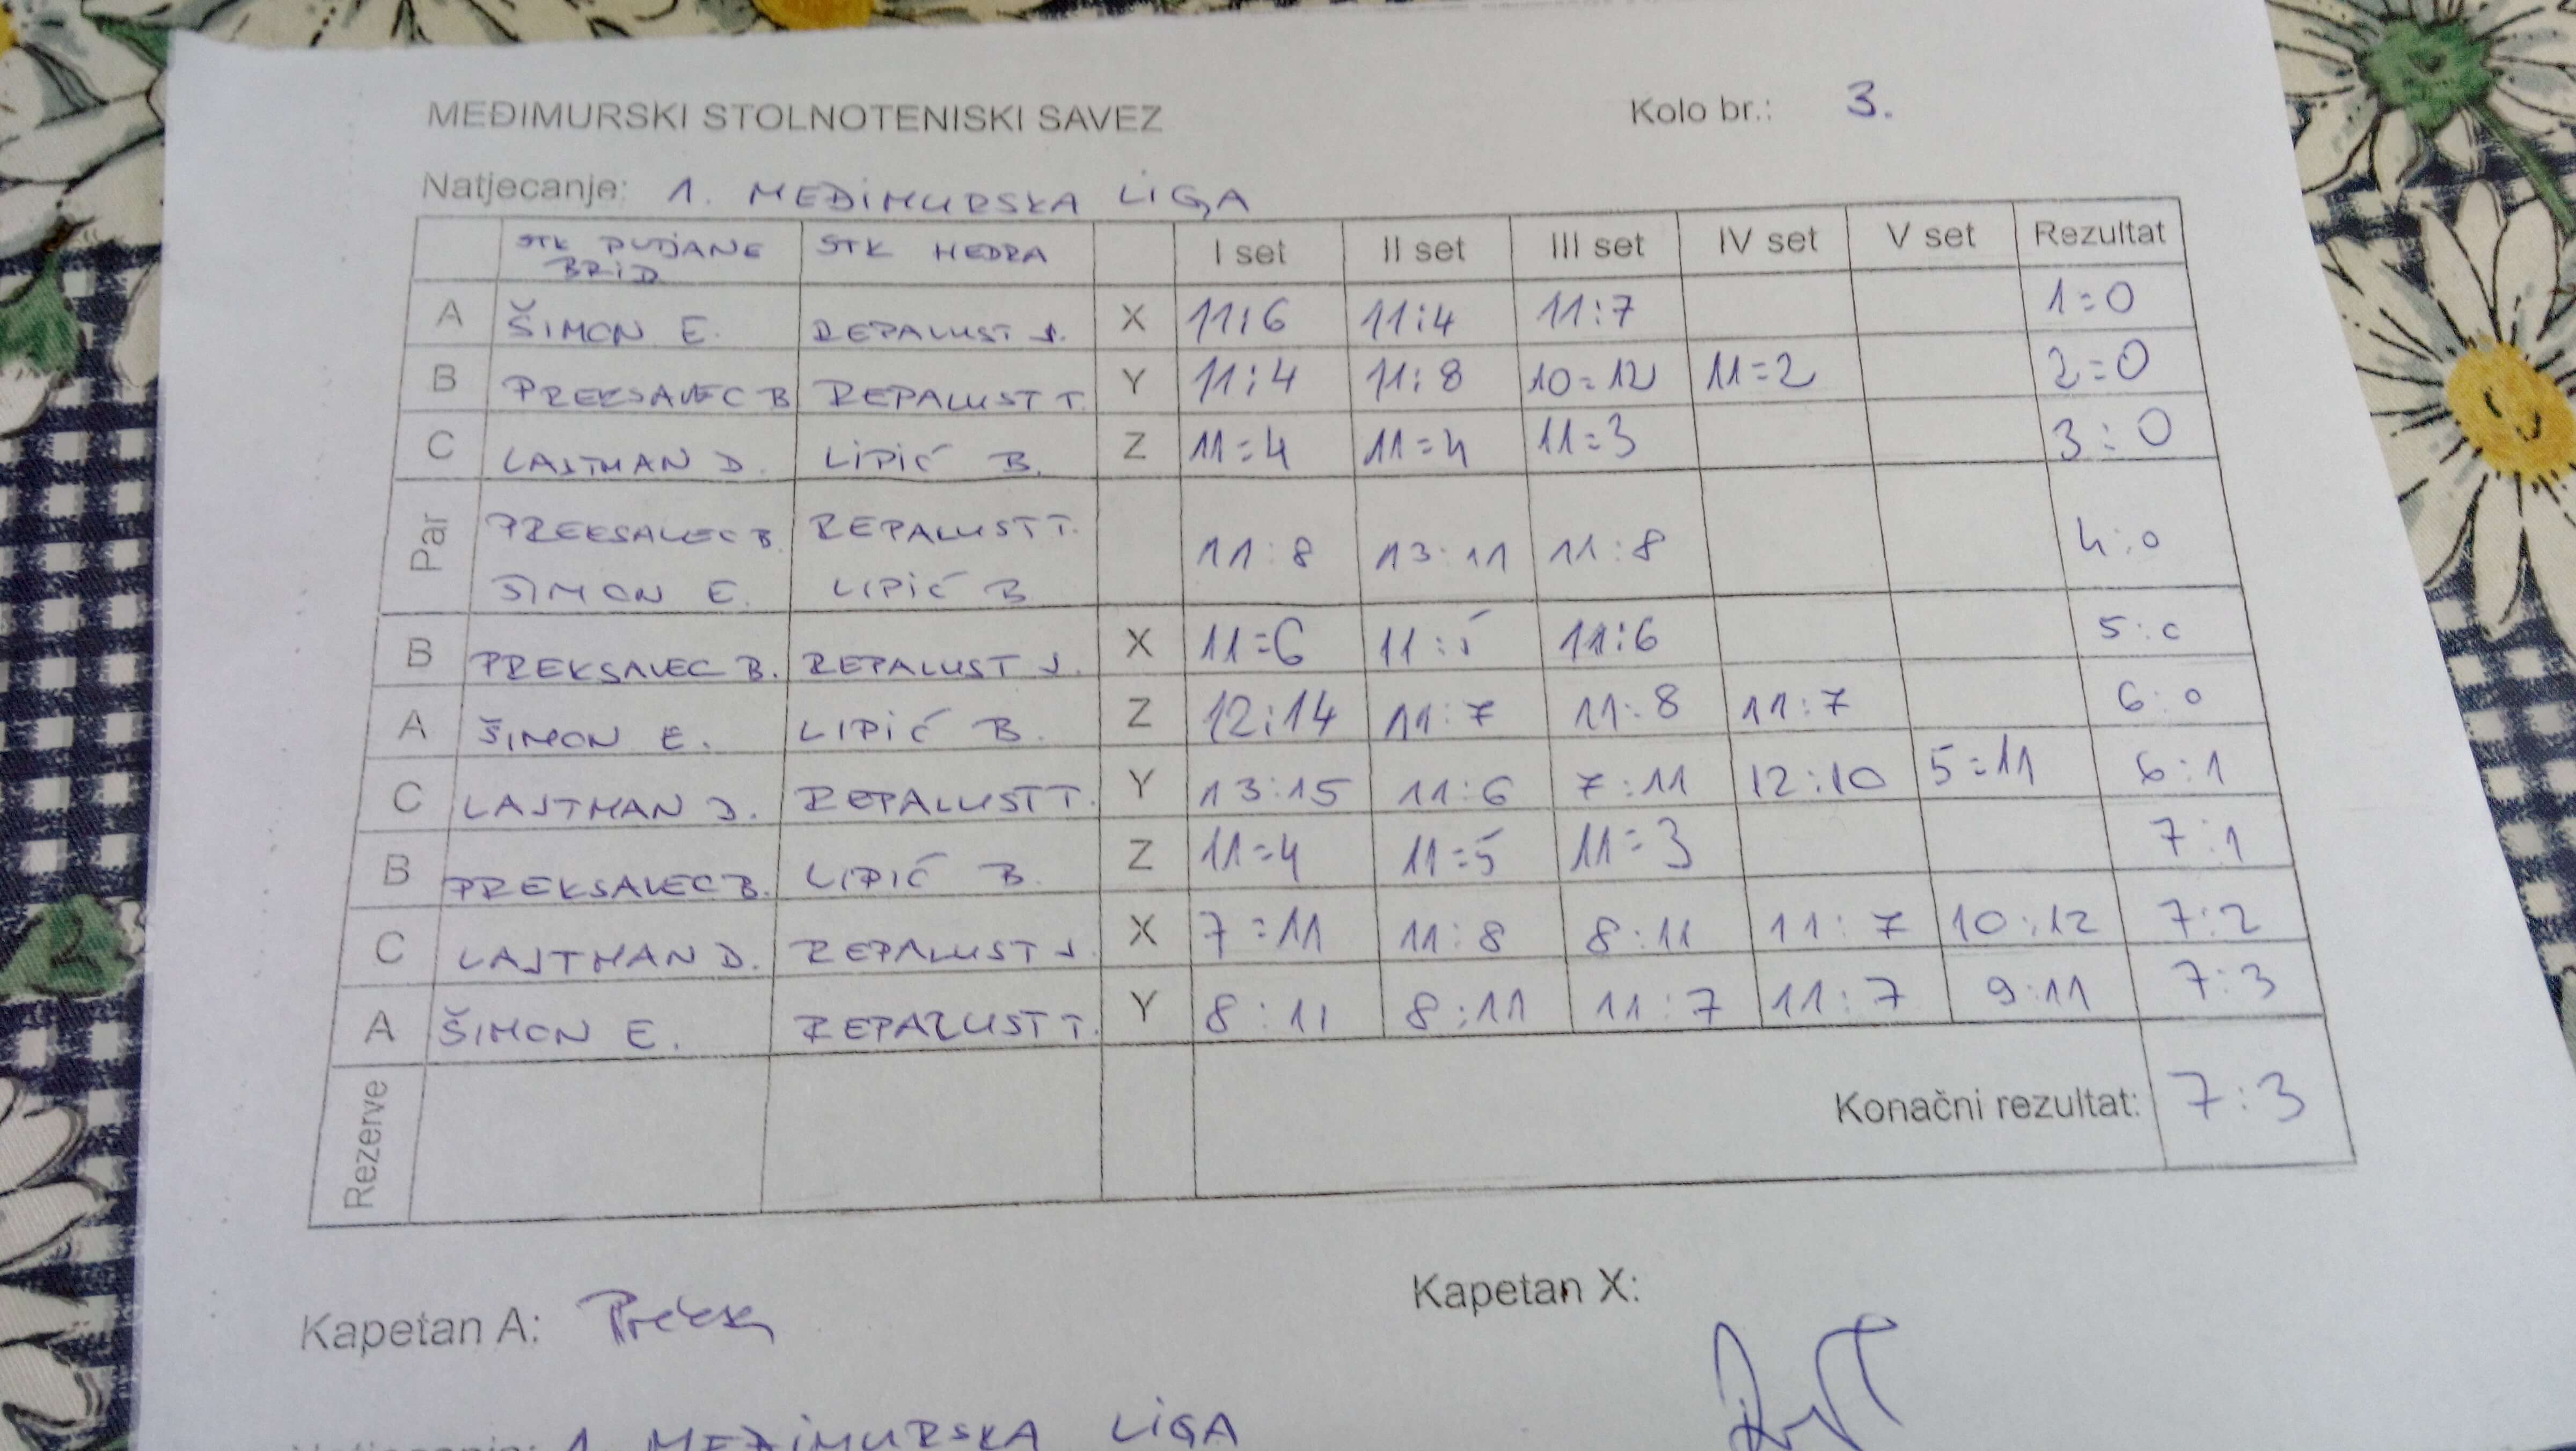 MEĐIMURSKI STOLNOTENISKI SAVEZ Kolo br.: 3.
Natjecanje: 1. MEĐIMURSKA LIGA
STK PUTJANE BRID STK HEDRA I set II set III set IV set V set Rezultat
A ŠIMON E. REPALUST J. X 11:6 11:4 11:7 1=0
B PREKSAVEC B REPALUST T. Y 11:4 11:8 10=12 11=2 2=0
C LAJTMAN D. LIPIĆ B. Z 11=4 11=4 11=3 3:0
Par PREKSAVEC B. REPALUST T. 11:8 13:11 11:8 4:0
ŠIMON E. LIPIĆ B
B PREKSAVEC B. REPALUST J. X 11=6 11:5 11:6 5:0
A ŠIMON E. LIPIĆ B. Z 12:14 11:7 11:8 11:7 6:0
C LAJTMAN D. REPALUST T. Y 13:15 11:6 7:11 12:10 5=11 6:1
B PREKSAVEC B. LIPIĆ B. Z 11=4 11=5 11=3 7:1
C LAJTMAN D. REPALUST J. X 7=11 11:8 8:11 11:7 10:12 7:2
A ŠIMON E. REPALUST T. Y 8:11 8:11 11:7 11:7 9:11 7:3
Rezerve Konačni rezultat: 7:3
Kapetan A: Kapetan X:
1. MEĐIMURSKA LIGA